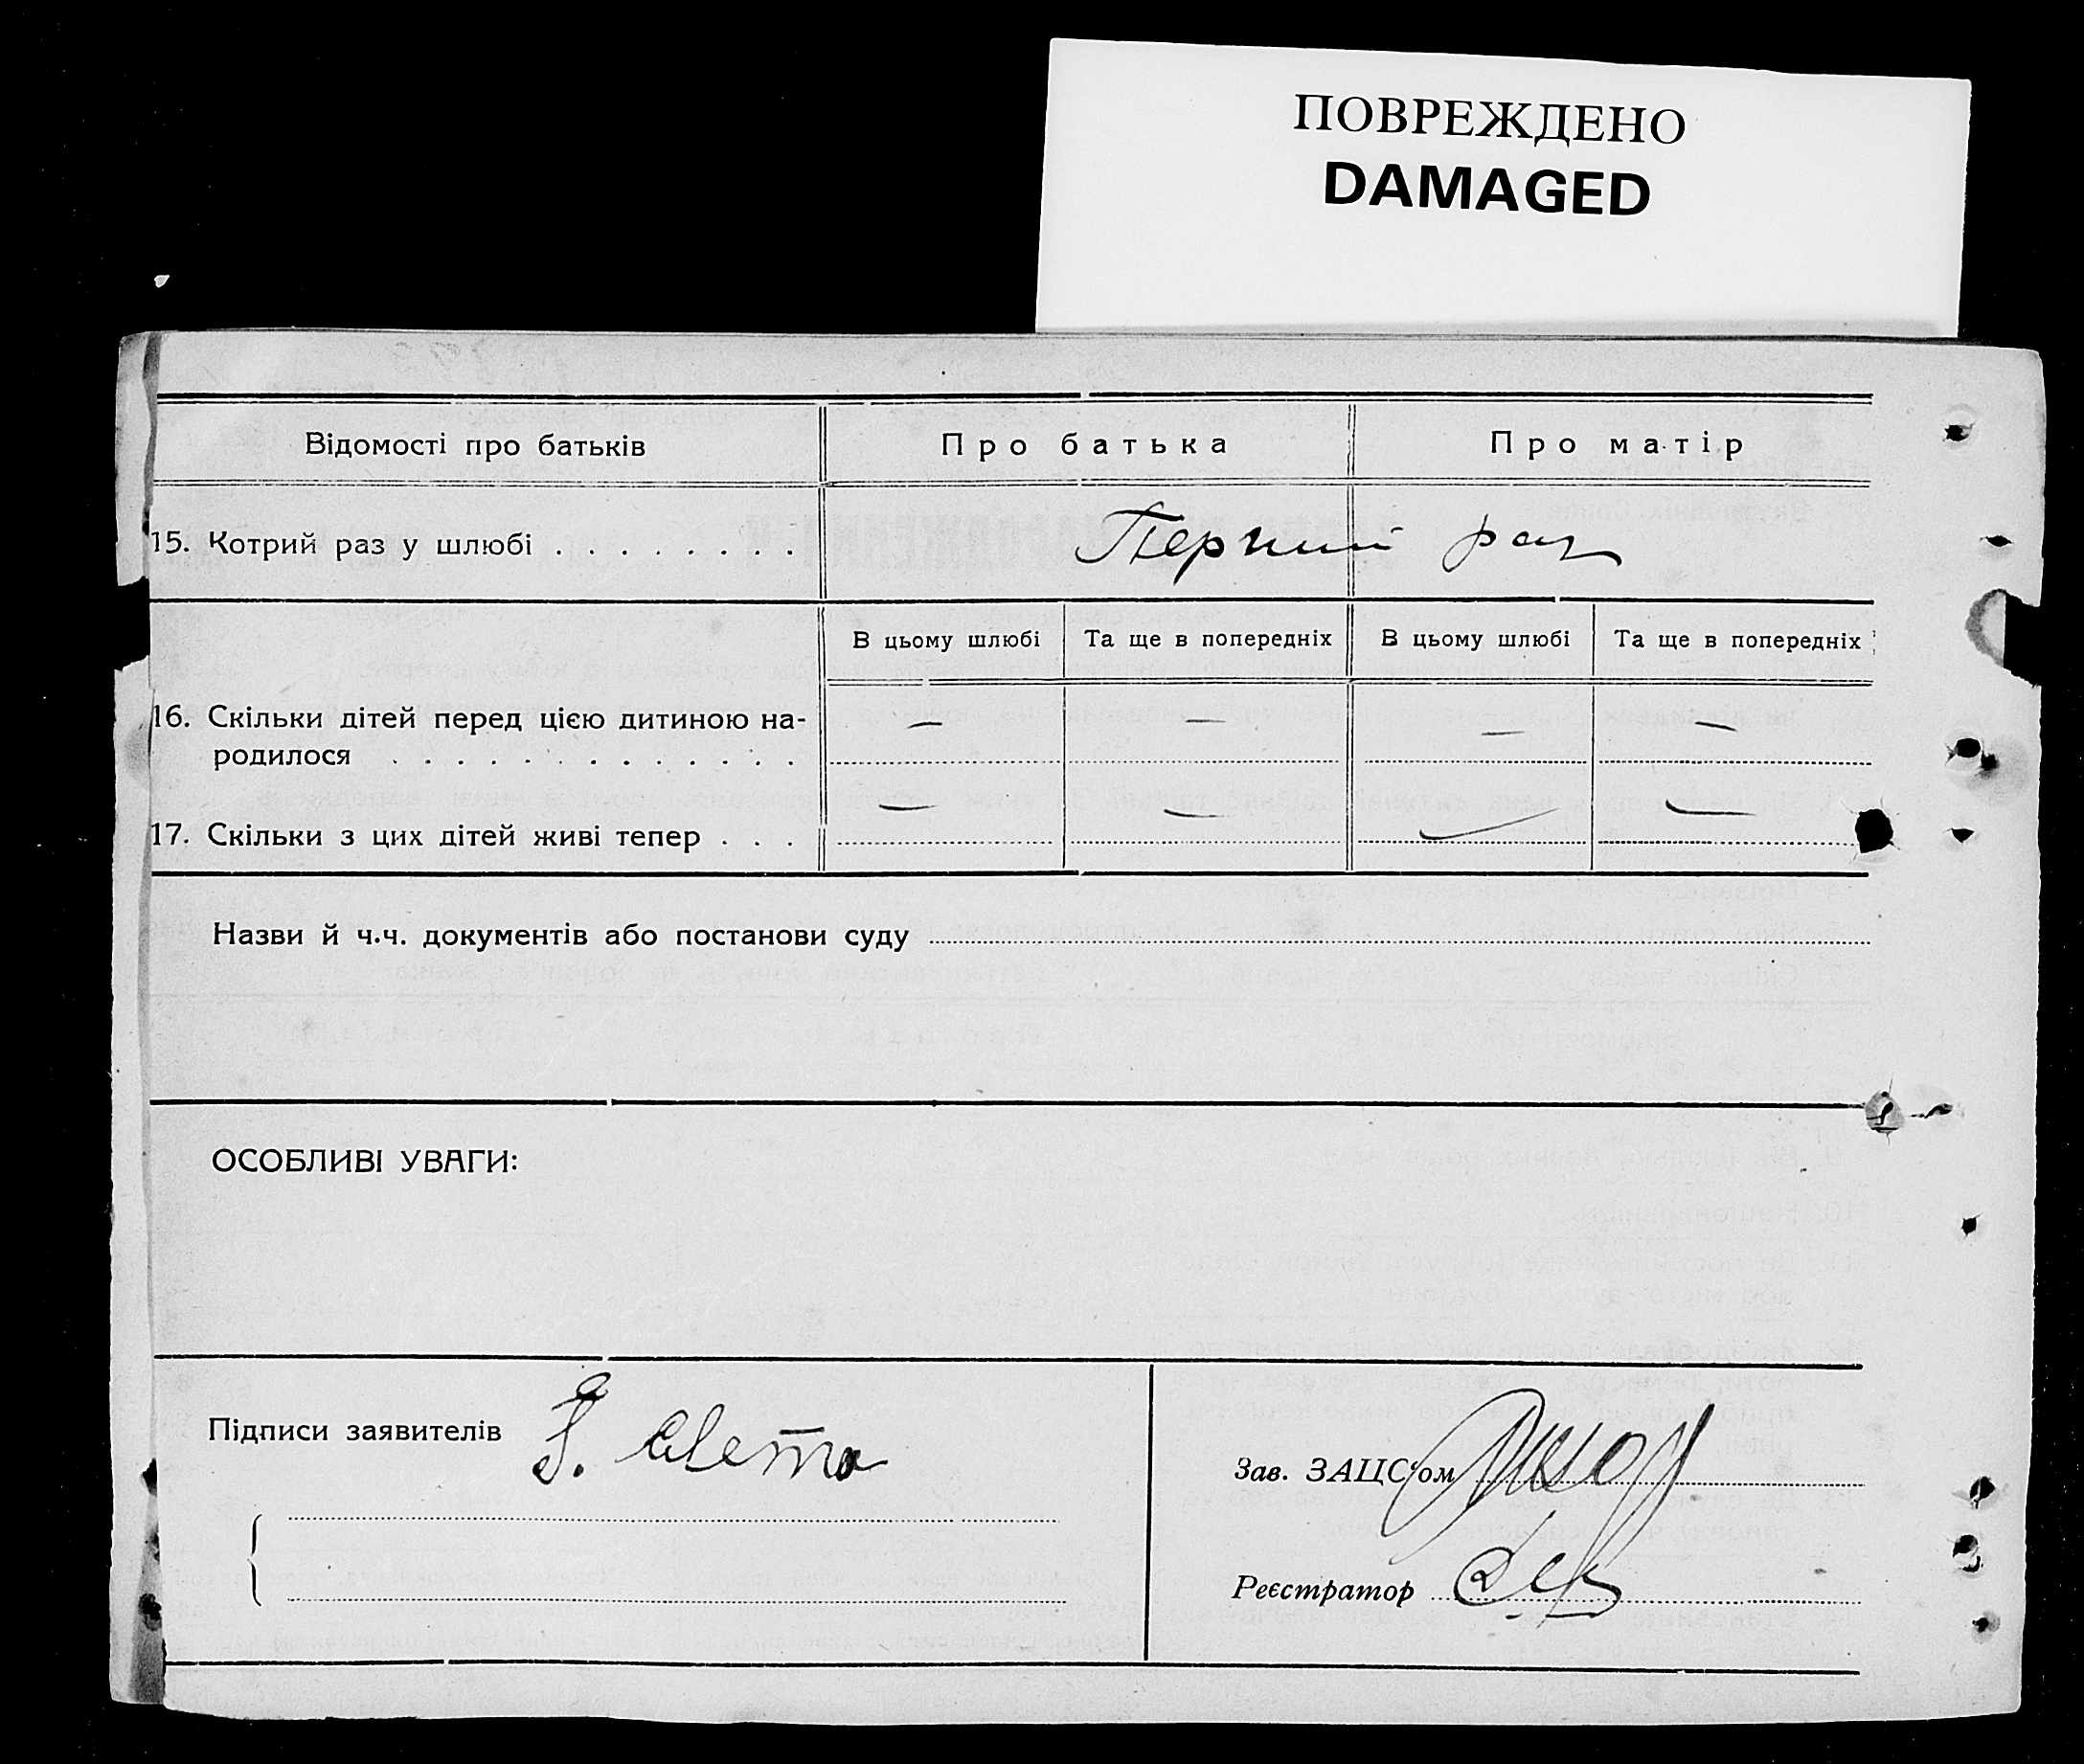 ПОВРЕЖДЕНО
DAMAGED
Відомості про батьків
Про батька
Про матір
15. Котрий раз у шлюбі . . . . . . . .
Перший раз
В цьому шлюбі
Та ще в попередніх
В цьому шлюбі
Та ще в попередніх
16. Скільки дітей перед цією дитиною на-
— — — —
родилося . . . . . . . . . . . . .
17. Скільки з цих дітей живі тепер . . .
— — — —
Назви й ч.ч. документів або постанови суду
ОСОБЛИВІ УВАГИ:
Підписи заявителів
Зав. ЗАЦС'ом
Реєстратор